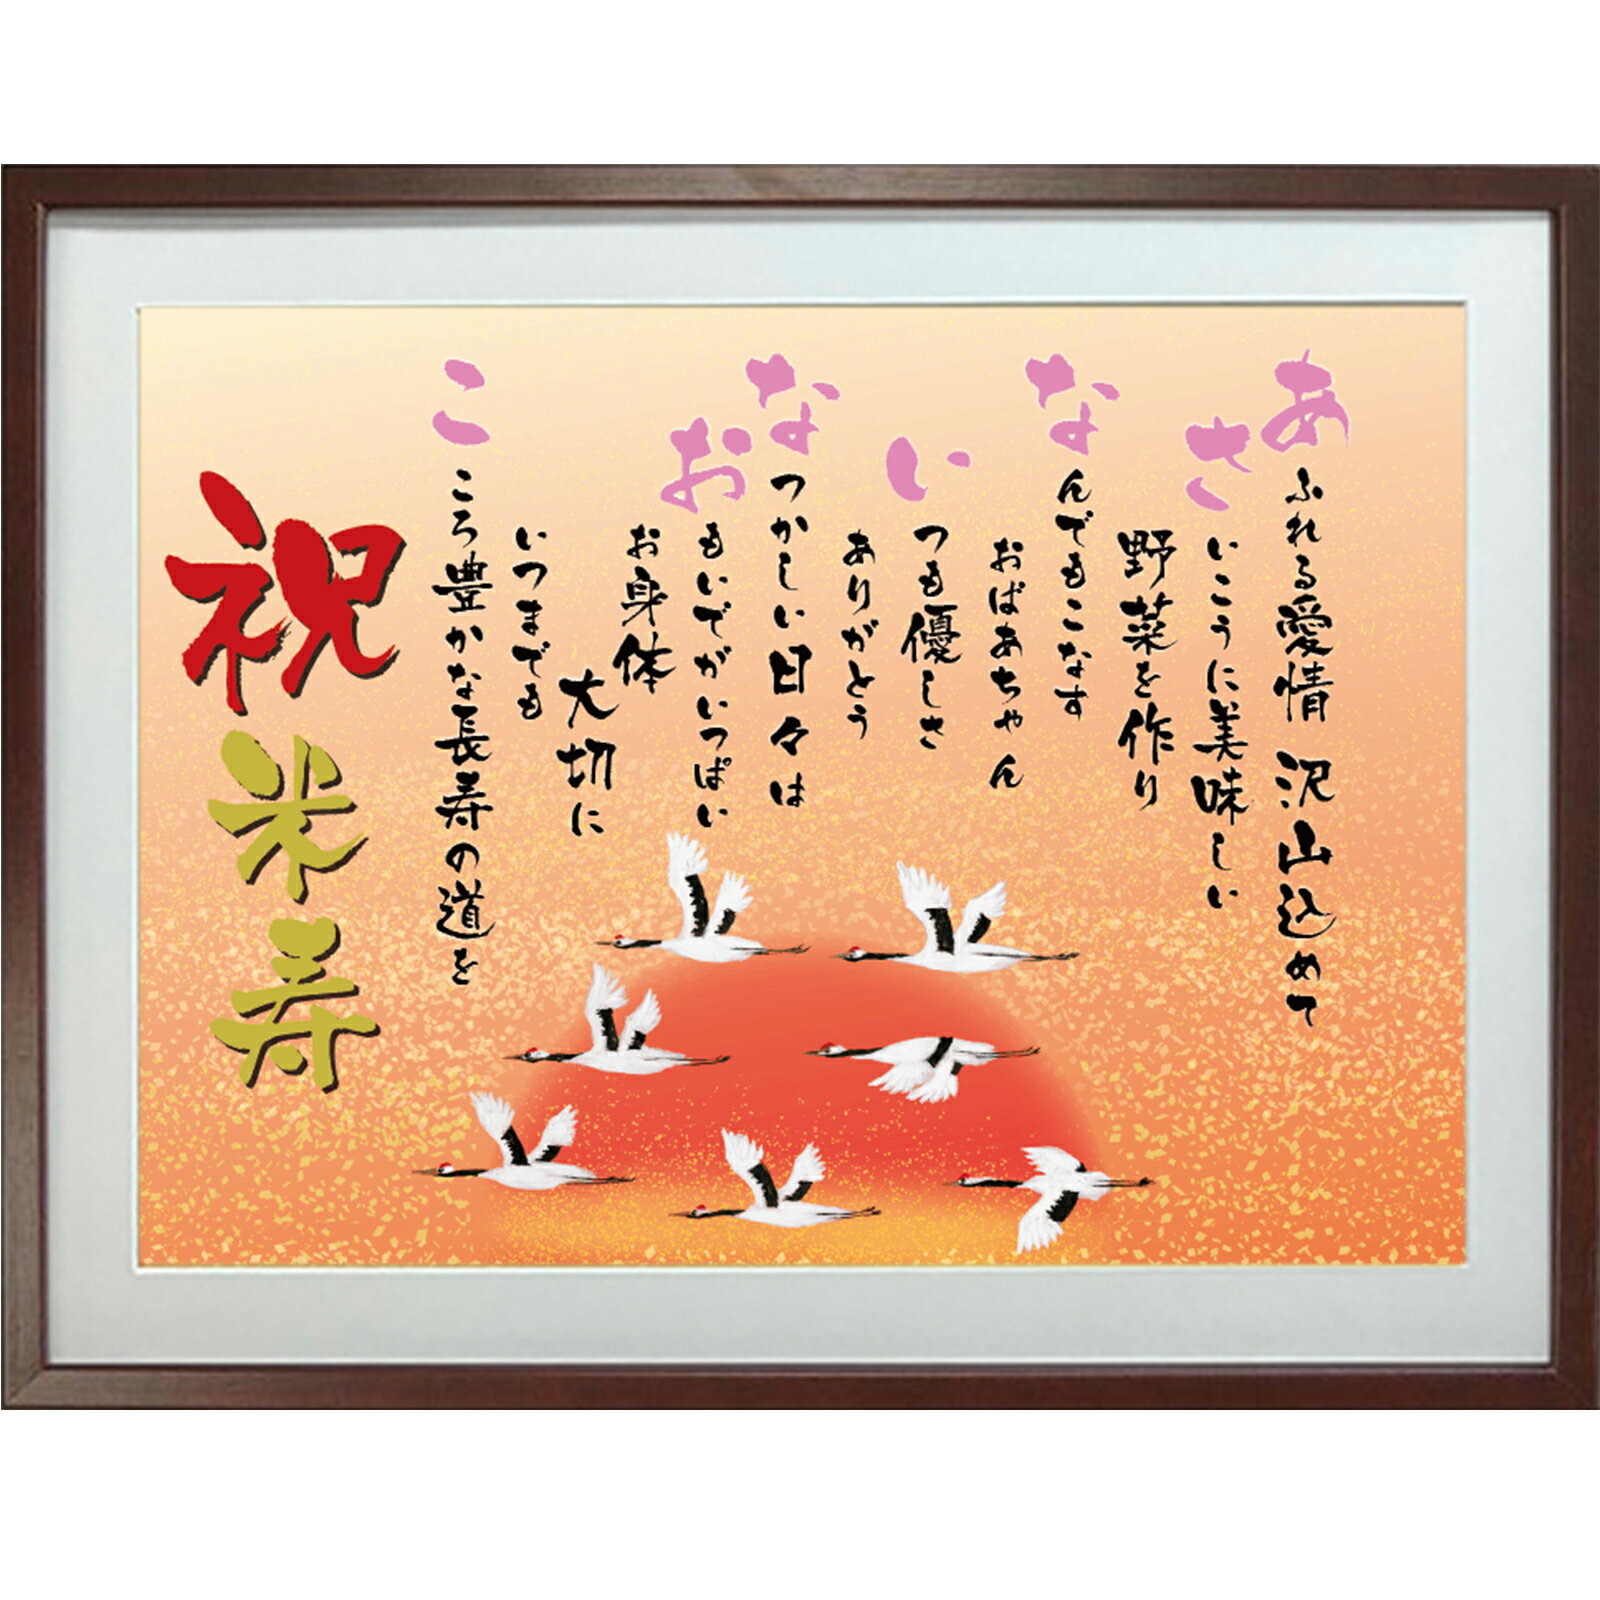 あふれる愛情 沢山込めて
さいこうに美味しい
野菜を作り
なんでもこなす
おばあちゃん
いつも優しさ
ありがとう
なつかしい日々は
おもいでがいっぱい
お身体
大切に
いつまでも
こころ豊かな長寿の道を
祝
米寿